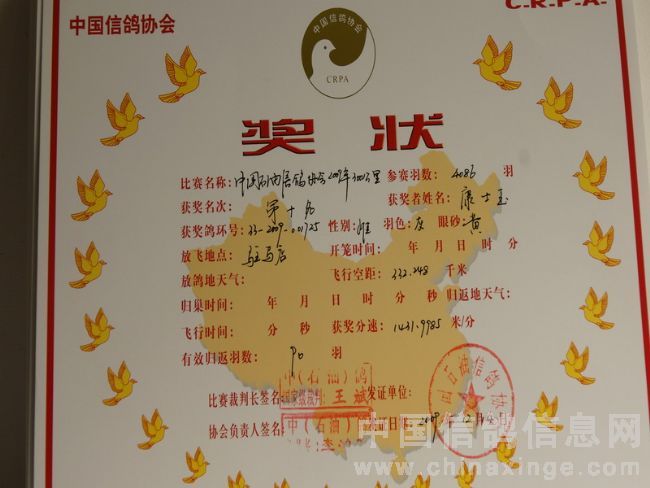 C.R.P.A.
中国信鸽协会
中国信鸽协会
CRPA
奖 状
比赛名称: 中国石油信鸽协会2009年300公里 参赛羽数: 4086 羽
获奖名次: 第十名 获奖者姓名: 康士玉
获奖鸽环号: 33-2009-001725 性别: 雄 羽色: 灰 眼砂: 黄
放飞地点: 驻马店 开笼时间: 年 月 日 时 分
放鸽地天气: 飞行空距: 332.248 千米
归巢时间: 年 月 日 时 分 秒 归返地天气:
飞行时间: 分 秒 获奖分速: 1431.9985 米/分
有效归返羽数: 羽
比赛裁判长签名 中(石油)鸽 国家级裁判: 王斌 发证单位:
协会负责人签名 中(石油) 证日 2009 12月
石油信鸽协
中国信鸽信息网
www.chinaxinge.com